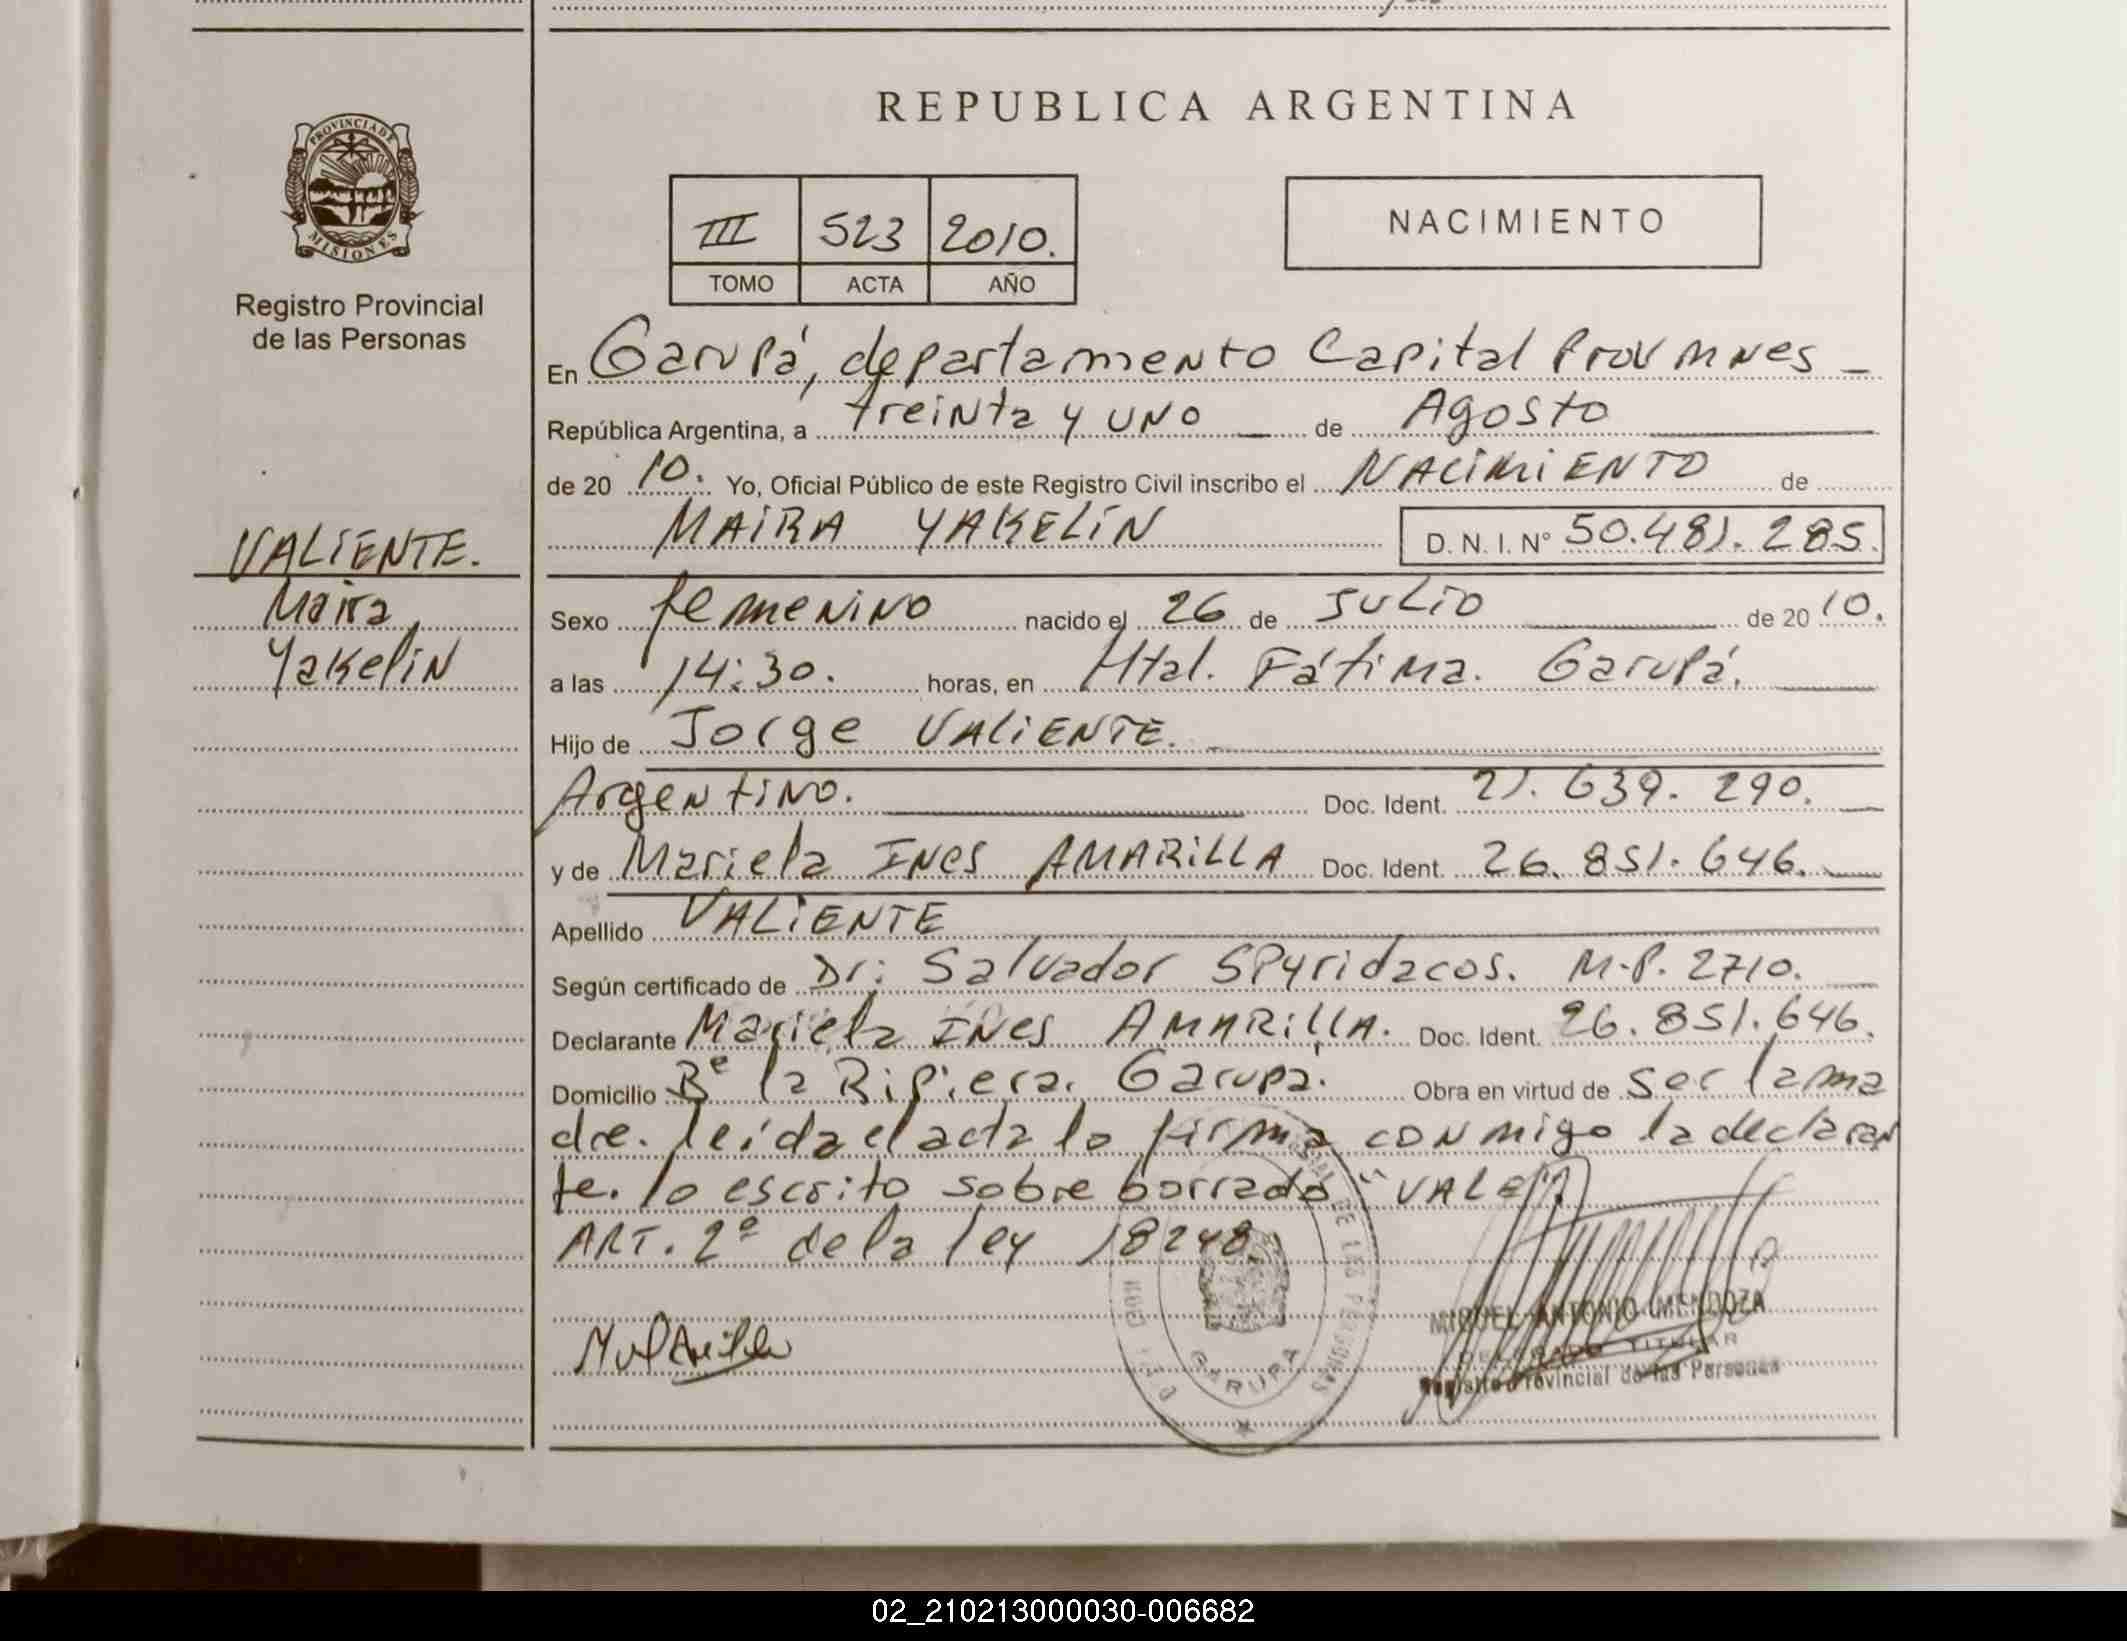 PROVINCIA DE
MISIONES
Registro Provincial
de las Personas
VALIENTE.
Maira
Yakelin
REPUBLICA ARGENTINA
III 523 2010.
TOMO ACTA AÑO
NACIMIENTO
En Garupá, departamento Capital Prov Mnes
República Argentina, a treinta y uno de Agosto
de 20 10. Yo, Oficial Público de este Registro Civil inscribo el NACIMIENTO de
MAIRA YAKELIN D. N. I. Nº 50.481.285.
Sexo femenino nacido el 26 de Julio de 20 10.
a las 14:30. horas, en Htal. Fátima. Garupá.
Hijo de Jorge VALIENTE.
Argentino. Doc. Ident. 21.639.290.
y de Mariela Ines AMARILLA Doc. Ident. 26.851.646.
Apellido VALIENTE
Según certificado de Dr: Salvador Spyridacos. M.P. 2710.
Declarante Mariela Ines AMARILLA. Doc. Ident. 26.851.646.
Domicilio Bº la Ripiera. Garupá. Obra en virtud de ser la ma
dre. leída el acta la firma conmigo la declaran
te. lo escrito sobre borrado "VALE"
ART. 2º de la ley 18248.
MIGUEL ANTONIO MENDOZA
DELEGADO TITULAR
Registro Provincial de las Personas
DE LAS PERSONAS
GARUPA
02_210213000030-006682